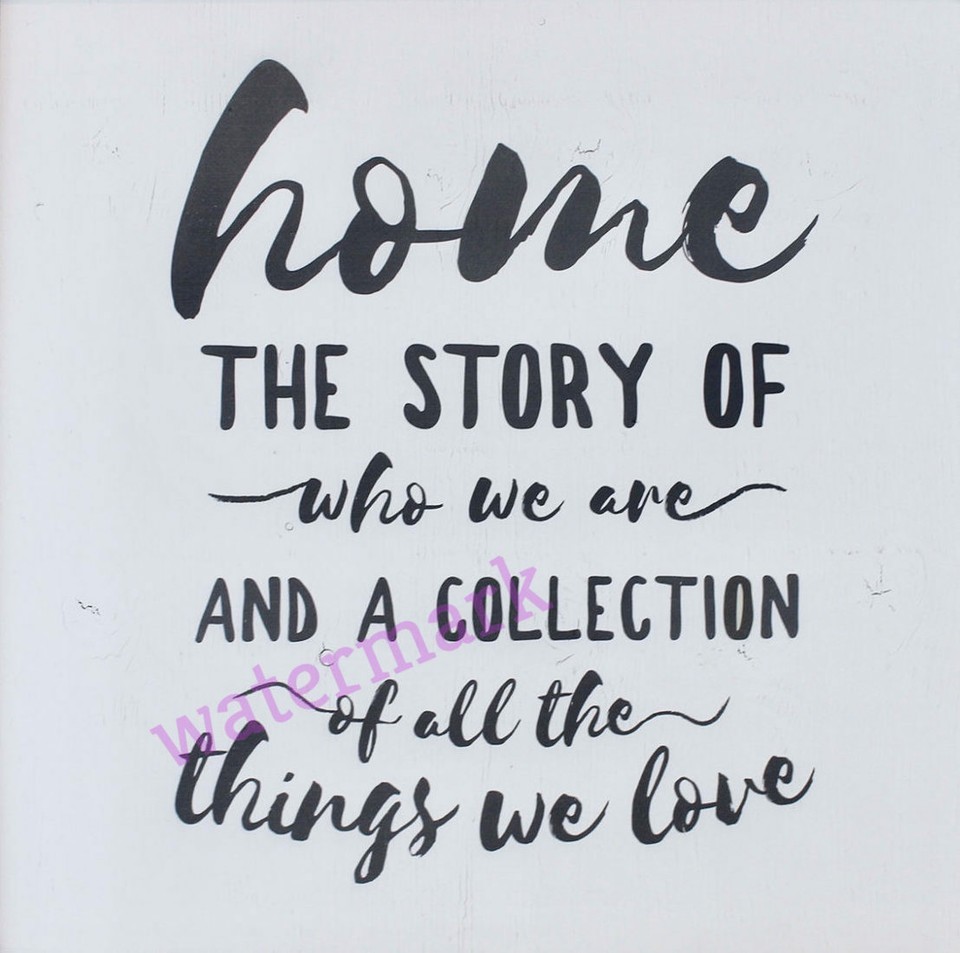 home
THE STORY OF
who we are
AND A COLLECTION
watermark
of all the
things we love